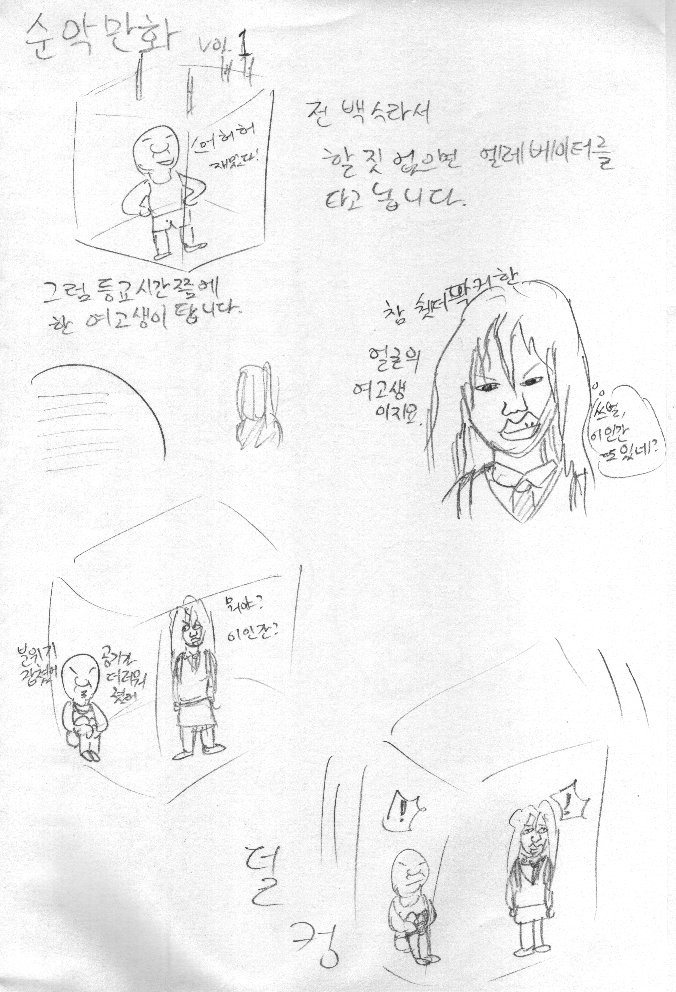 순악만화 Vol.1
으허허
재밌다!
전 백수라서
할 짓 없으면 엘레베이터를
타고 놉니다.
그럼 등교시간쯤에
한 여고생이 탑니다.
참 쳇더퍽커한
얼굴의
여고생
이지요.
쓰벌,
이인간
또있네?
분위기
잡쳤어
공기가
더러워
졌어
뭐야?
이인간?
!
!
덜
컹